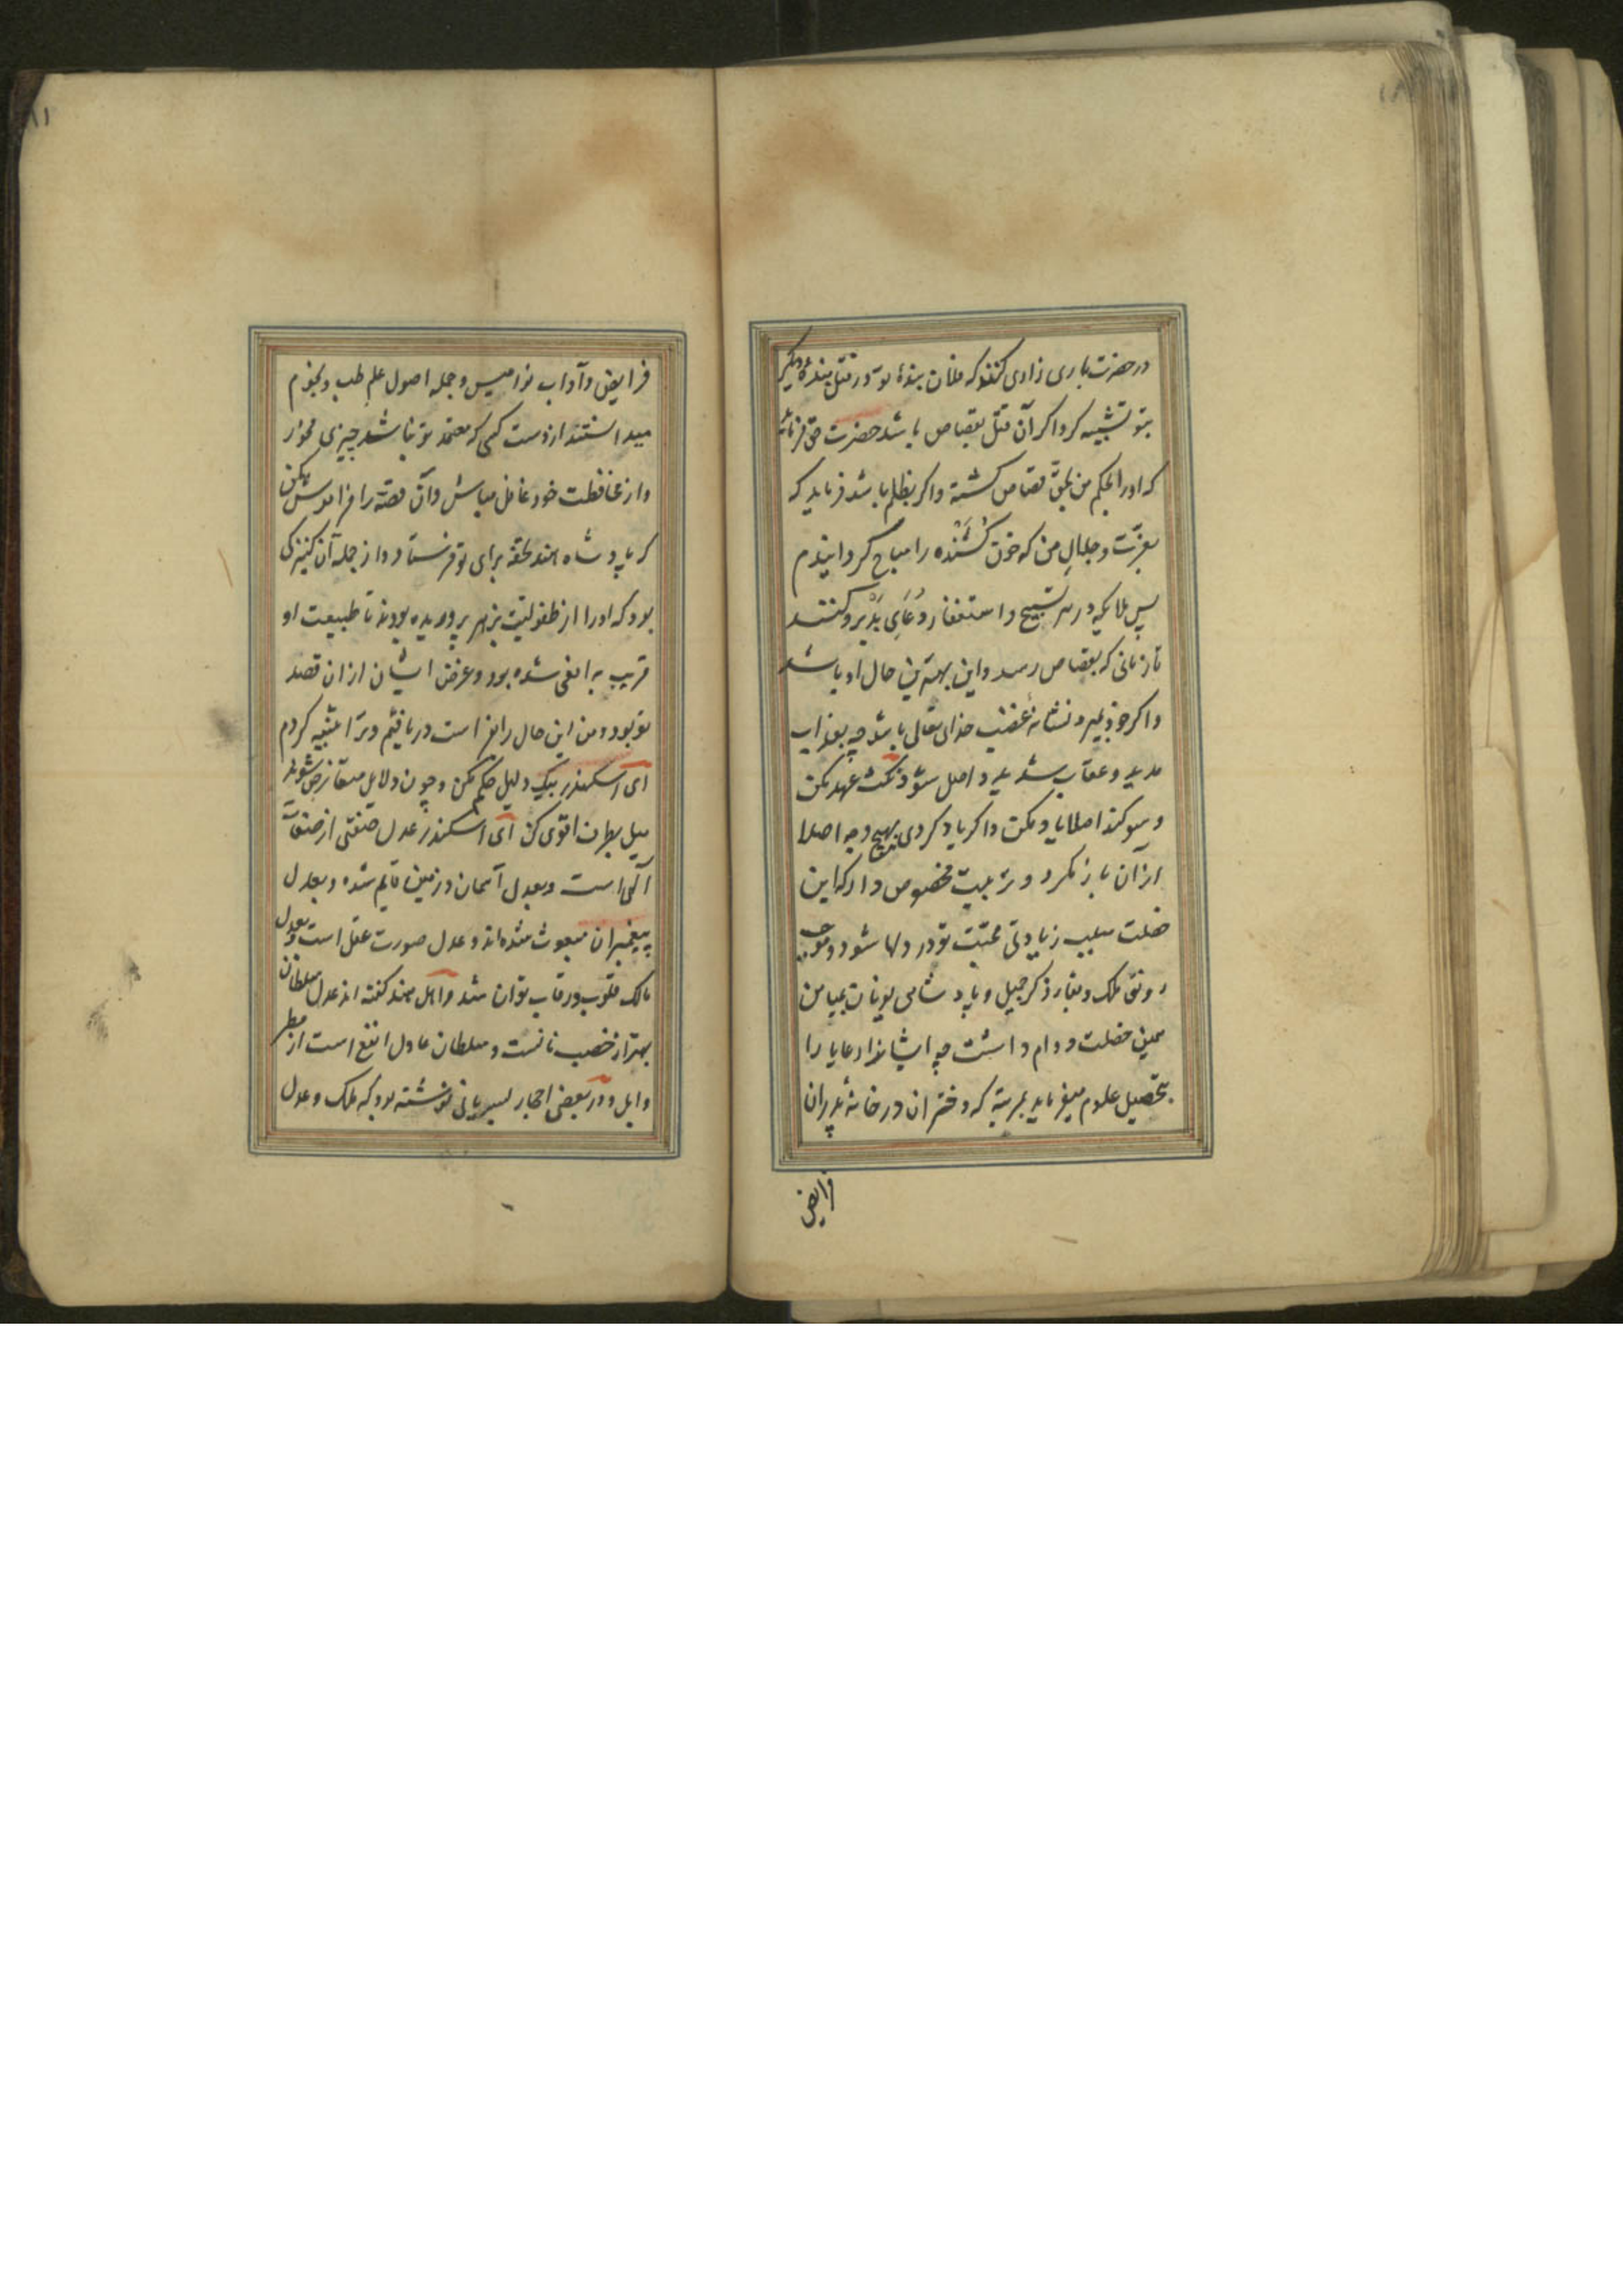 در حضرت باری زاری کنند که فلان بندهٔ تو در قتل بندهٔ دیگر
بتو تشبیه کرد اگر آن قتل بقصاص باشد حضرت حق فرماید
که او را بحکم من بحق قصاص کشته و اگر بظلم باشد فرماید که
بعزّت و جلالِ من که خون کُشَنده را مباح گردانیدم
پس ملایکه در هر تسبیح و استغفار دُعَایِ بَدْ برو کنند
تا زمانی که بقصاص رسد و این بهترین حال او باشد
و اگر خود بمیرد نشانهٔ غضب خدای تعالی باشد چه بعذاب
مدید و عقاب شدید واصل شود نکث عهد مکن
و سوکند اصلا یاد مکن و اگر یاد کردی بهیچ وجه اصلا
از آن باز نکرد و تربیت مخصوص دار که این
خصلت سبب زیادتی محبّت تو در دلها شود و موجب
رونق ملک و بقاء ذکر جمیل و پادشاهی یونان بمیامن
همین خصلت دوام داشت چه ایشان رعایا را
بتحصیل علوم میفرماید بمرتبهٔ که دختران در خانهٔ پدران
فرایض
فرایض و آداب نوامیس و جمله اصول علم طب و نجوم
میدانستند از دست کسی که معتمد تو نباشد چیزی مخور
و از محافظت خود غافل مباش و آن قصّه را فراموش مکن
که پادشاه هند تحفه برای تو فرستاد و از جمله آن کنیزکی
بود که او را از طفولیّت بزهر پروریده بودند تا طبیعت او
قریب به افعی شده بود و غرض ایشان از آن قصد
تو بود و من این حال را بفراست دریافتم و ترا تنبیه کردم
ای اسکندر بیک دلیل حکم مکن و چون دلایل متعارض شوند
میل بطرف اقوی کن ای اسکندر عدل صفتی از صفات
آلهی است و بعدل آسمان و زمین قایم شده و بعدل
پیغمبران مبعوث شده اند و عدل صورت عقل است و بعدل
مالک قلوب و رقاب توان شد و اهل هند کفته اند عدل سلطان
بهتر از خصب زمانست و سلطان عادل انفع است از مطر
وابل و در بعضی احجار بسریانی نوشته بود که ملک و عدل